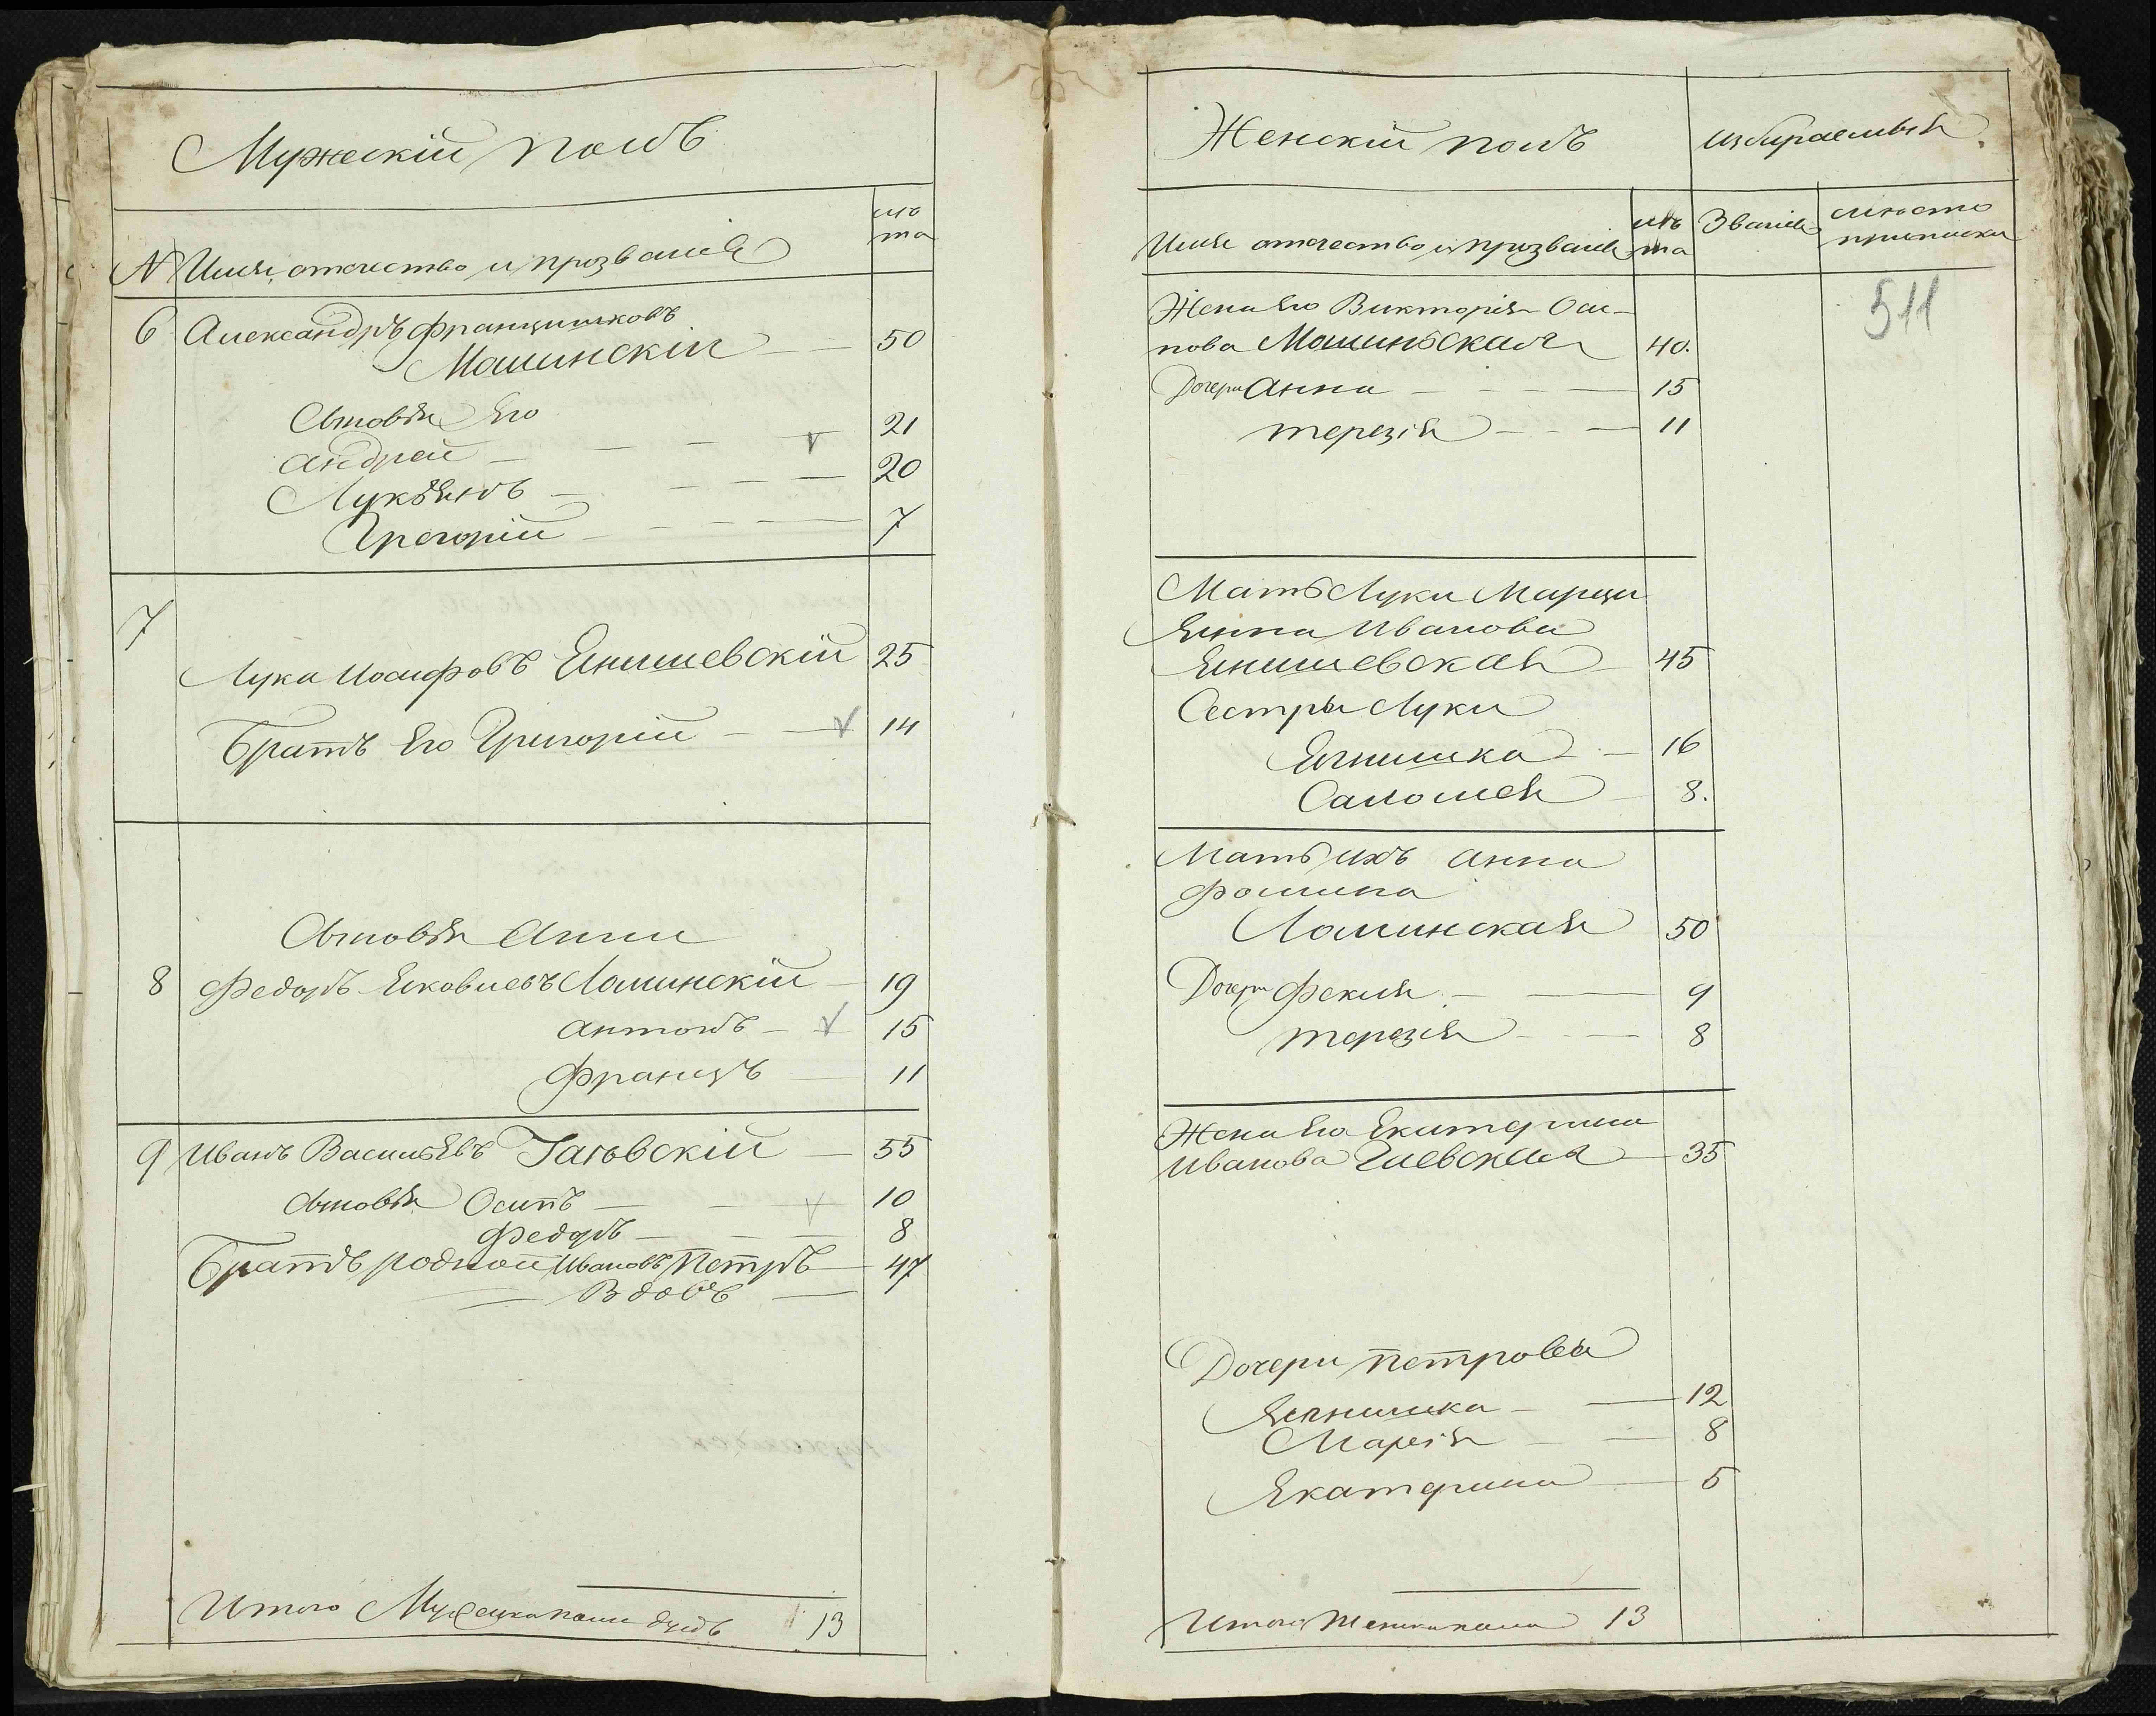 Мужескій полъ
лѣ
та
N Имя, отчество и прозваніе
6 Александръ Францишковъ
Малинскій 50
Сыновья Его
Андрей 21
Лукьянъ 20
Григорій 7
7
Лука Иосифовъ Янишевскій 25
Братъ Его Григорій 14
Сыновья Анны
8 Федоръ Яковлевъ Ломинскій 19
Антонъ 15
Францъ 11
9 Иванъ Васильевъ Гаевскій 55
Сыновья Осипъ 10
Федоръ 8
Братъ родной Ивановъ Петръ 47
Вдовъ
Итого Мужеска пола душъ 13
Женскій полъ
избираемыя
Имя отчество и прозваніе
лѣ
та
Званіе
мѣсто
приписки
511
Жена Его Викторія Оси-
пова Малиньская 40.
Дочери Анна 15
Терезія 11
Мать Луки Марци
янна Иванова
Янишевская 45
Сестры Луки
Ягнишка 16
Саломея 8.
Мать ихъ Анна
Фомина
Ломинская 50
Дочери Фекля 9
Терезія 8
Жена Его Екатерина
Иванова Гаевская 35
Дочери Петровы
Ягнишка 12
Марія 8
Екатерина 5
Итого Женска пола 13